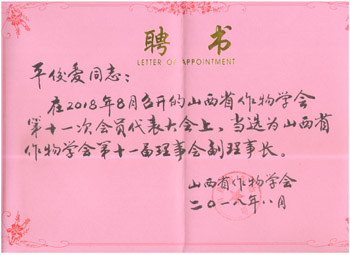 聘 书
LETTER OF APPOINTMENT
平俊爱同志：
在2018年8月召开的山西省作物学会
第十一次会员代表大会上，当选为山西省
作物学会第十一届理事会副理事长。
山西省作物学会
二〇一八年八月